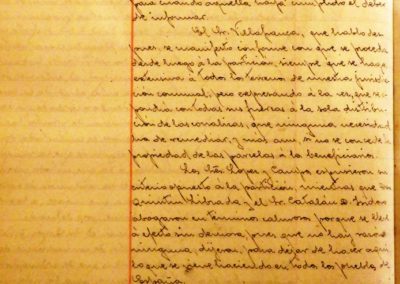 para cuando aquella haya cumplido el deber
de informar.
El Sr. Villafranca, que habló des
pues, se manifestó conforme con que se proceda
desde luego á la partición, siempre que se haga
estensiva á todos los terrenos de nuestra jurisdic
cion comunal, pero esperando á la vez, que se o
pondria con todas sus fuerzas á la sola distribu
cion de las corralizas, que ninguna necesidad
ha de remediar, y mas aun, si no se concede la
propiedad de las parcelas á los beneficiarios.
Los Sres. Lopez y Campo espusieron su
criterio opuesto á la partición, mientras que
Quintin Lidnada y el Sr. Catalán D. Isidoro
abogaron en terminos calurosos porque se lleve
á efecto sin demora, pues que no hay razon
ninguna dijeron, para dejar de hacer aqui
lo que se viene haciendo en todos los pueblos de
España.